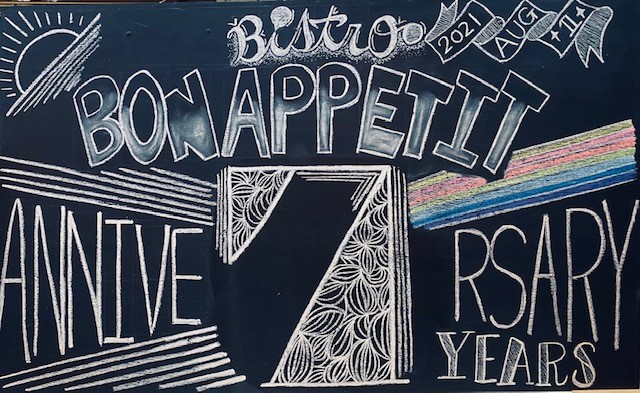 Bistro 2021 AUG 11
BON APPETIT
ANNIVE 7 RSARY
YEARS